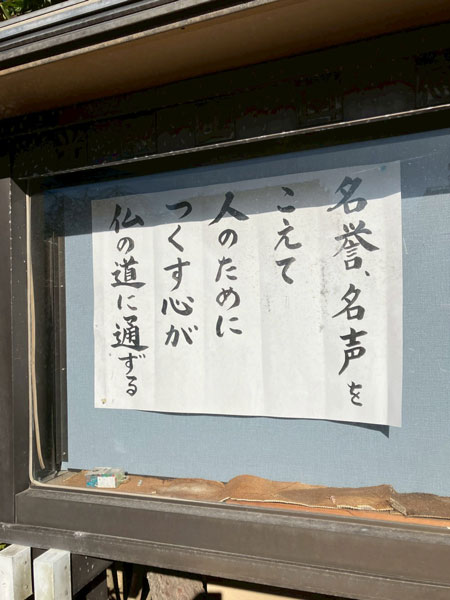 名誉、名声を
こえて
人のために
つくす心が
仏の道に通ずる